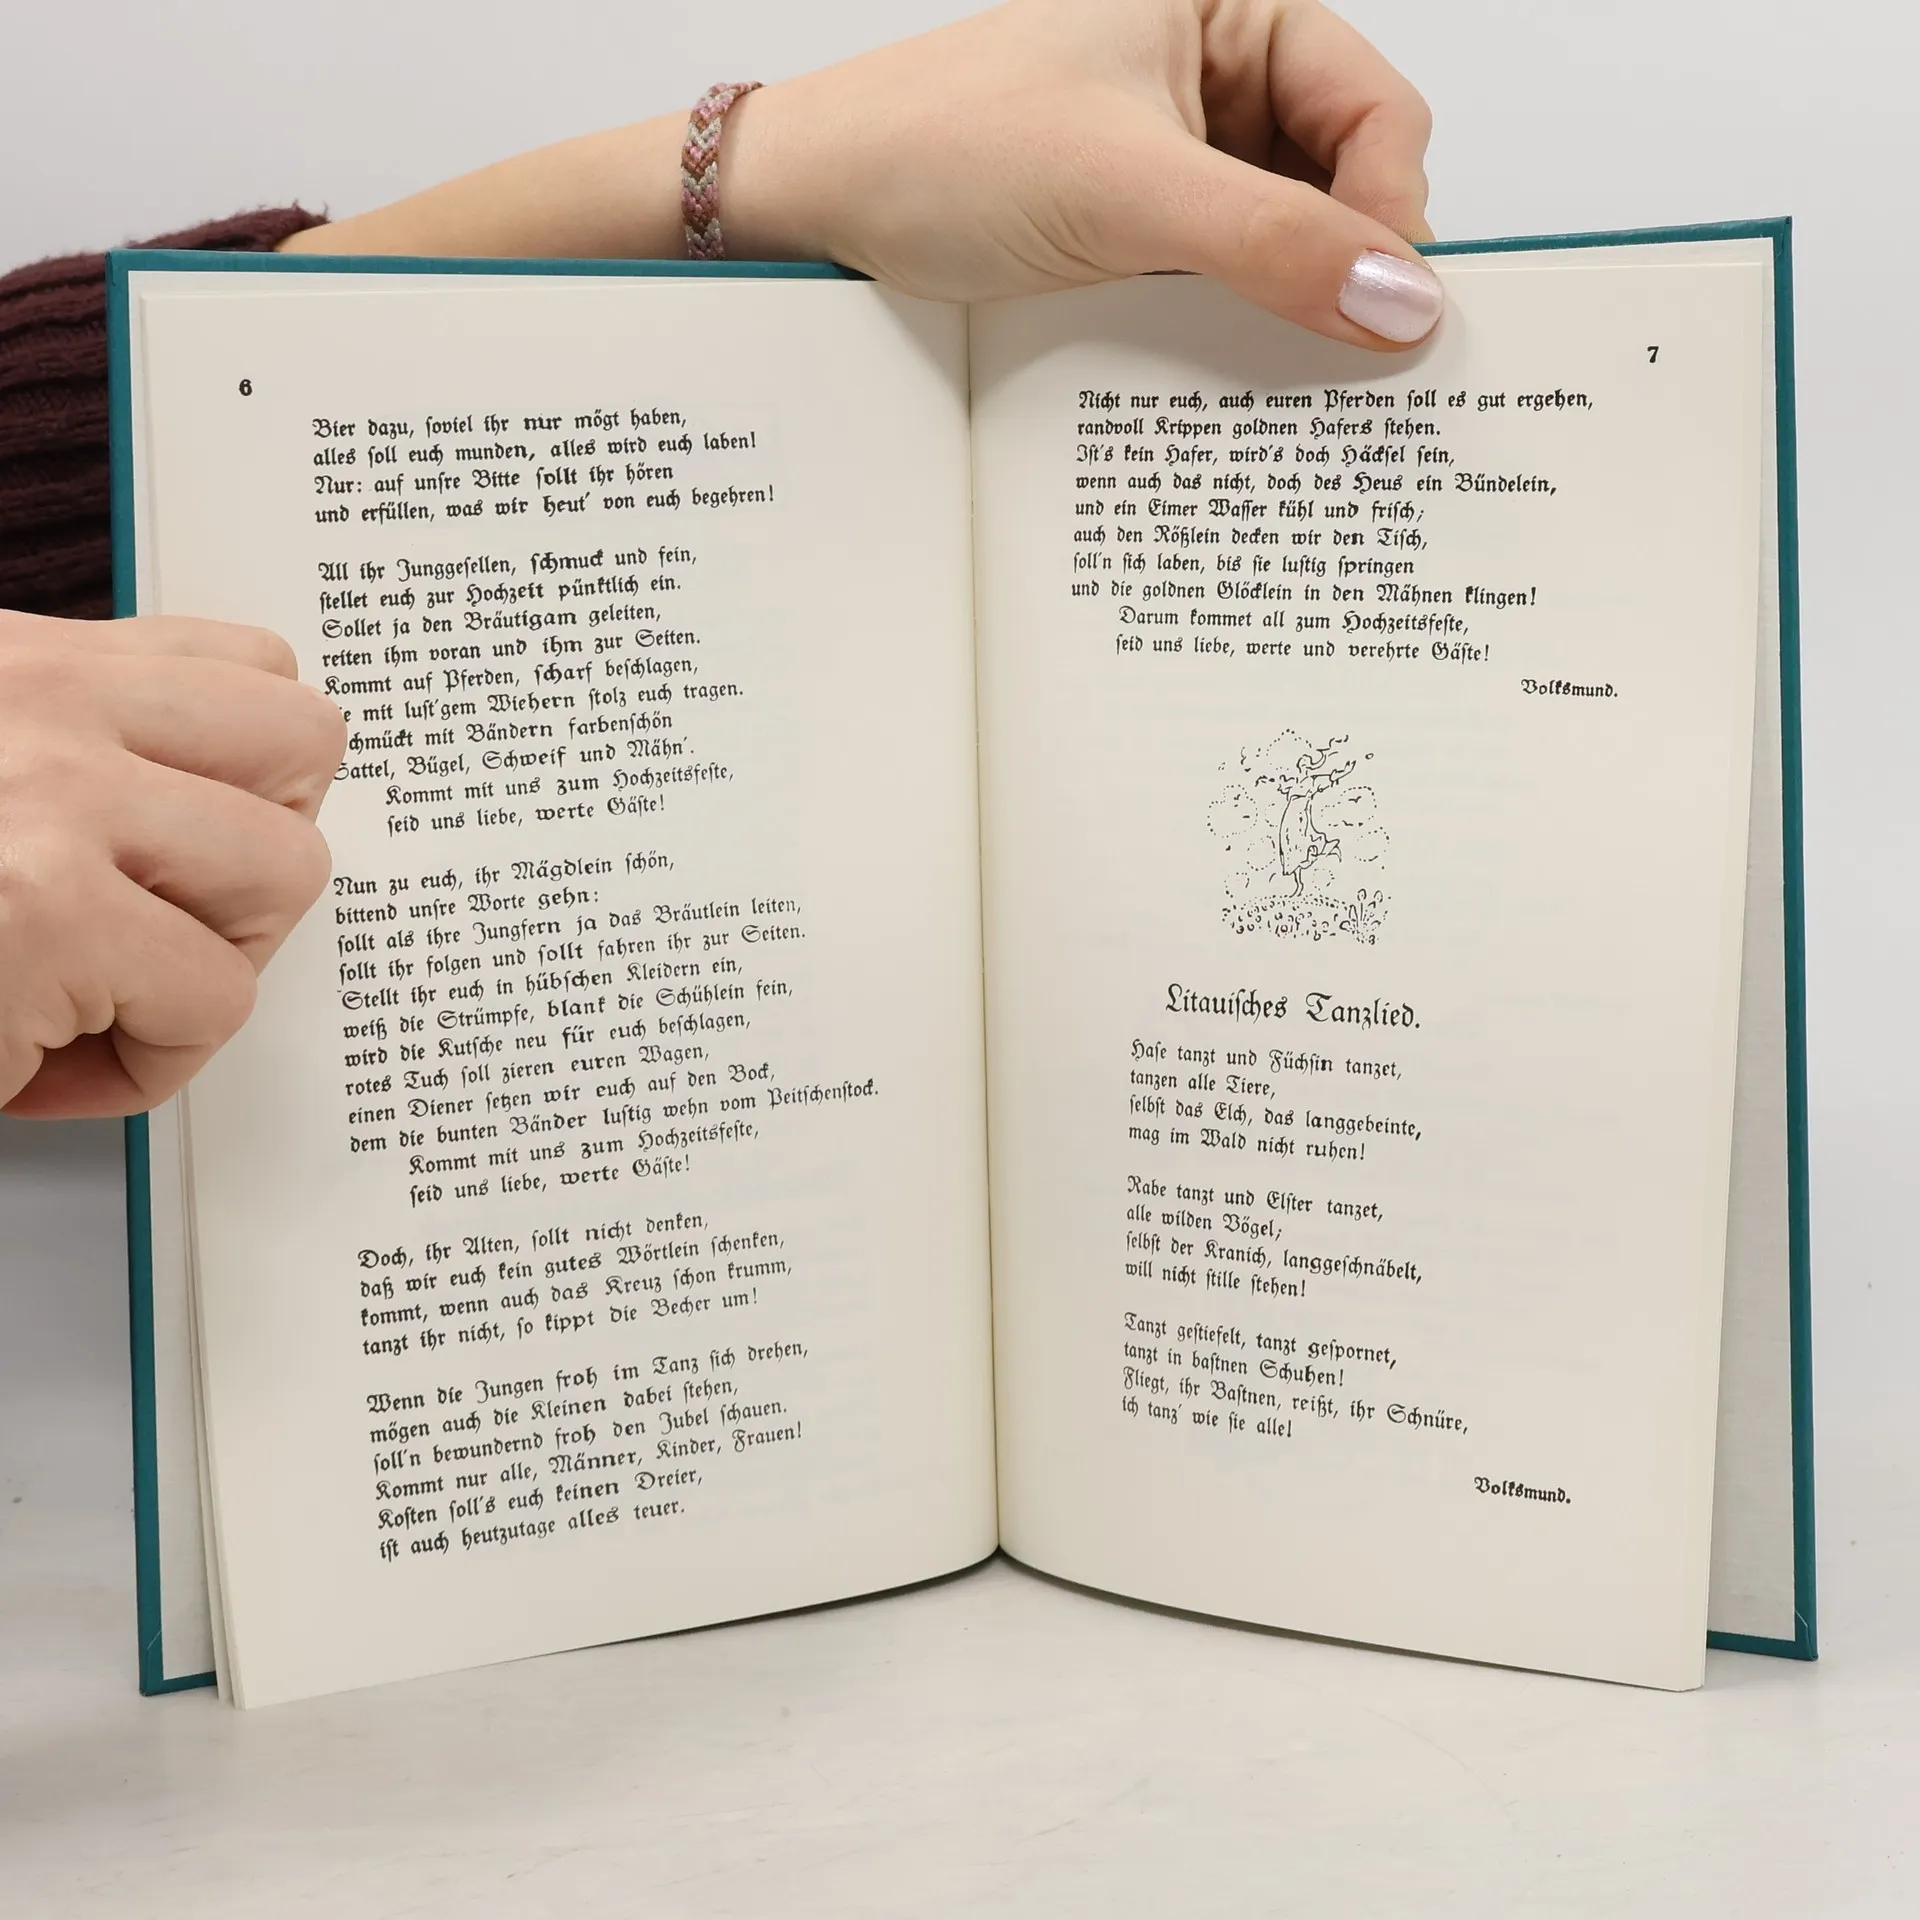 6
Bier dazu, soviel ihr nur mögt haben,
alles soll euch munden, alles wird euch laben!
Nur: auf unsre Bitte sollt ihr hören
und erfüllen, was wir heut' von euch begehren!
All ihr Junggesellen, schmuck und fein,
stellet euch zur Hochzeit pünktlich ein.
Sollet ja den Bräutigam geleiten,
reiten ihm voran und ihm zur Seiten.
Kommt auf Pferden, scharf beschlagen,
mit lust'gem Wiehern stolz euch tragen.
chmückt mit Bändern farbenschön
Sattel, Bügel, Schweif und Mähn'.
Kommt mit uns zum Hochzeitsfeste,
seid uns liebe, werte Gäste!
Nun zu euch, ihr Mägdlein schön,
bittend unsre Worte gehn:
sollt als ihre Jungfern ja das Bräutlein leiten,
sollt ihr folgen und sollt fahren ihr zur Seiten.
Stellt ihr euch in hübschen Kleidern ein,
weiß die Strümpfe, blank die Schühlein fein,
wird die Kutsche neu für euch beschlagen,
rotes Tuch soll zieren euren Wagen,
einen Diener setzen wir euch auf den Bock,
dem die bunten Bänder lustig wehn vom Peitschenstock.
Kommt mit uns zum Hochzeitsfeste,
seid uns liebe, werte Gäste!
Doch, ihr Alten, sollt nicht denken,
daß wir euch kein gutes Wörtlein schenken,
kommt, wenn auch das Kreuz schon krumm,
tanzt ihr nicht, so kippt die Becher um!
Wenn die Jungen froh im Tanz sich drehen,
mögen auch die Kleinen dabei stehen,
soll'n bewundernd froh den Jubel schauen.
Kommt nur alle, Männer, Kinder, Frauen!
Kosten soll's euch keinen Dreier,
ist auch heutzutage alles teuer.
7
Nicht nur euch, auch euren Pferden soll es gut ergehen,
randvoll Krippen goldnen Hafers stehen.
Ist's kein Hafer, wird's doch Häcksel sein,
wenn auch das nicht, doch des Heus ein Bündelein,
und ein Eimer Wasser kühl und frisch;
auch den Rößlein decken wir den Tisch,
soll'n sich laben, bis sie lustig springen
und die goldnen Glöcklein in den Mähnen klingen!
Darum kommet all zum Hochzeitsfeste,
seid uns liebe, werte und verehrte Gäste!
Volksmund.
Litauisches Tanzlied.
Hase tanzt und Füchsin tanzet,
tanzen alle Tiere,
selbst das Elch, das langgebeinte,
mag im Wald nicht ruhen!
Rabe tanzt und Elster tanzet,
alle wilden Vögel;
selbst der Kranich, langgeschnäbelt,
will nicht stille stehen!
Tanzt gestiefelt, tanzt gespornet,
tanzt in bastnen Schuhen!
Fliegt, ihr Bastnen, reißt, ihr Schnüre,
ich tanz' wie sie alle!
Volksmund.